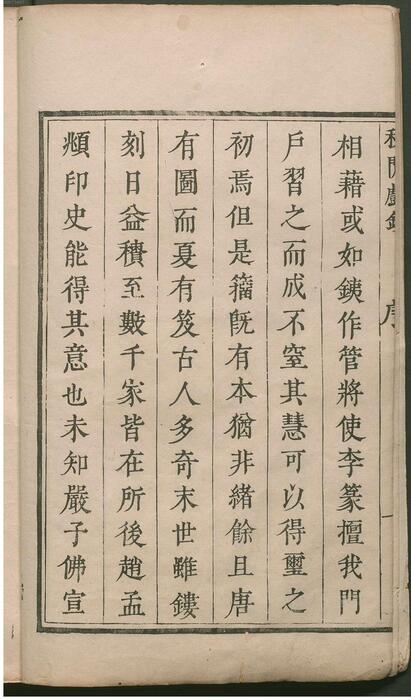 序
相藉或如銕作管將使李篆擅我門
戶習之而成不窒其慧可以得璽之
初焉但是籀旣有本猶非緒餘且唐
有圖而夏有笈古人多奇末世雖鏤
刻日益積至數千家皆在所後趙孟
頫印史能得其意也未知嚴子佛宣